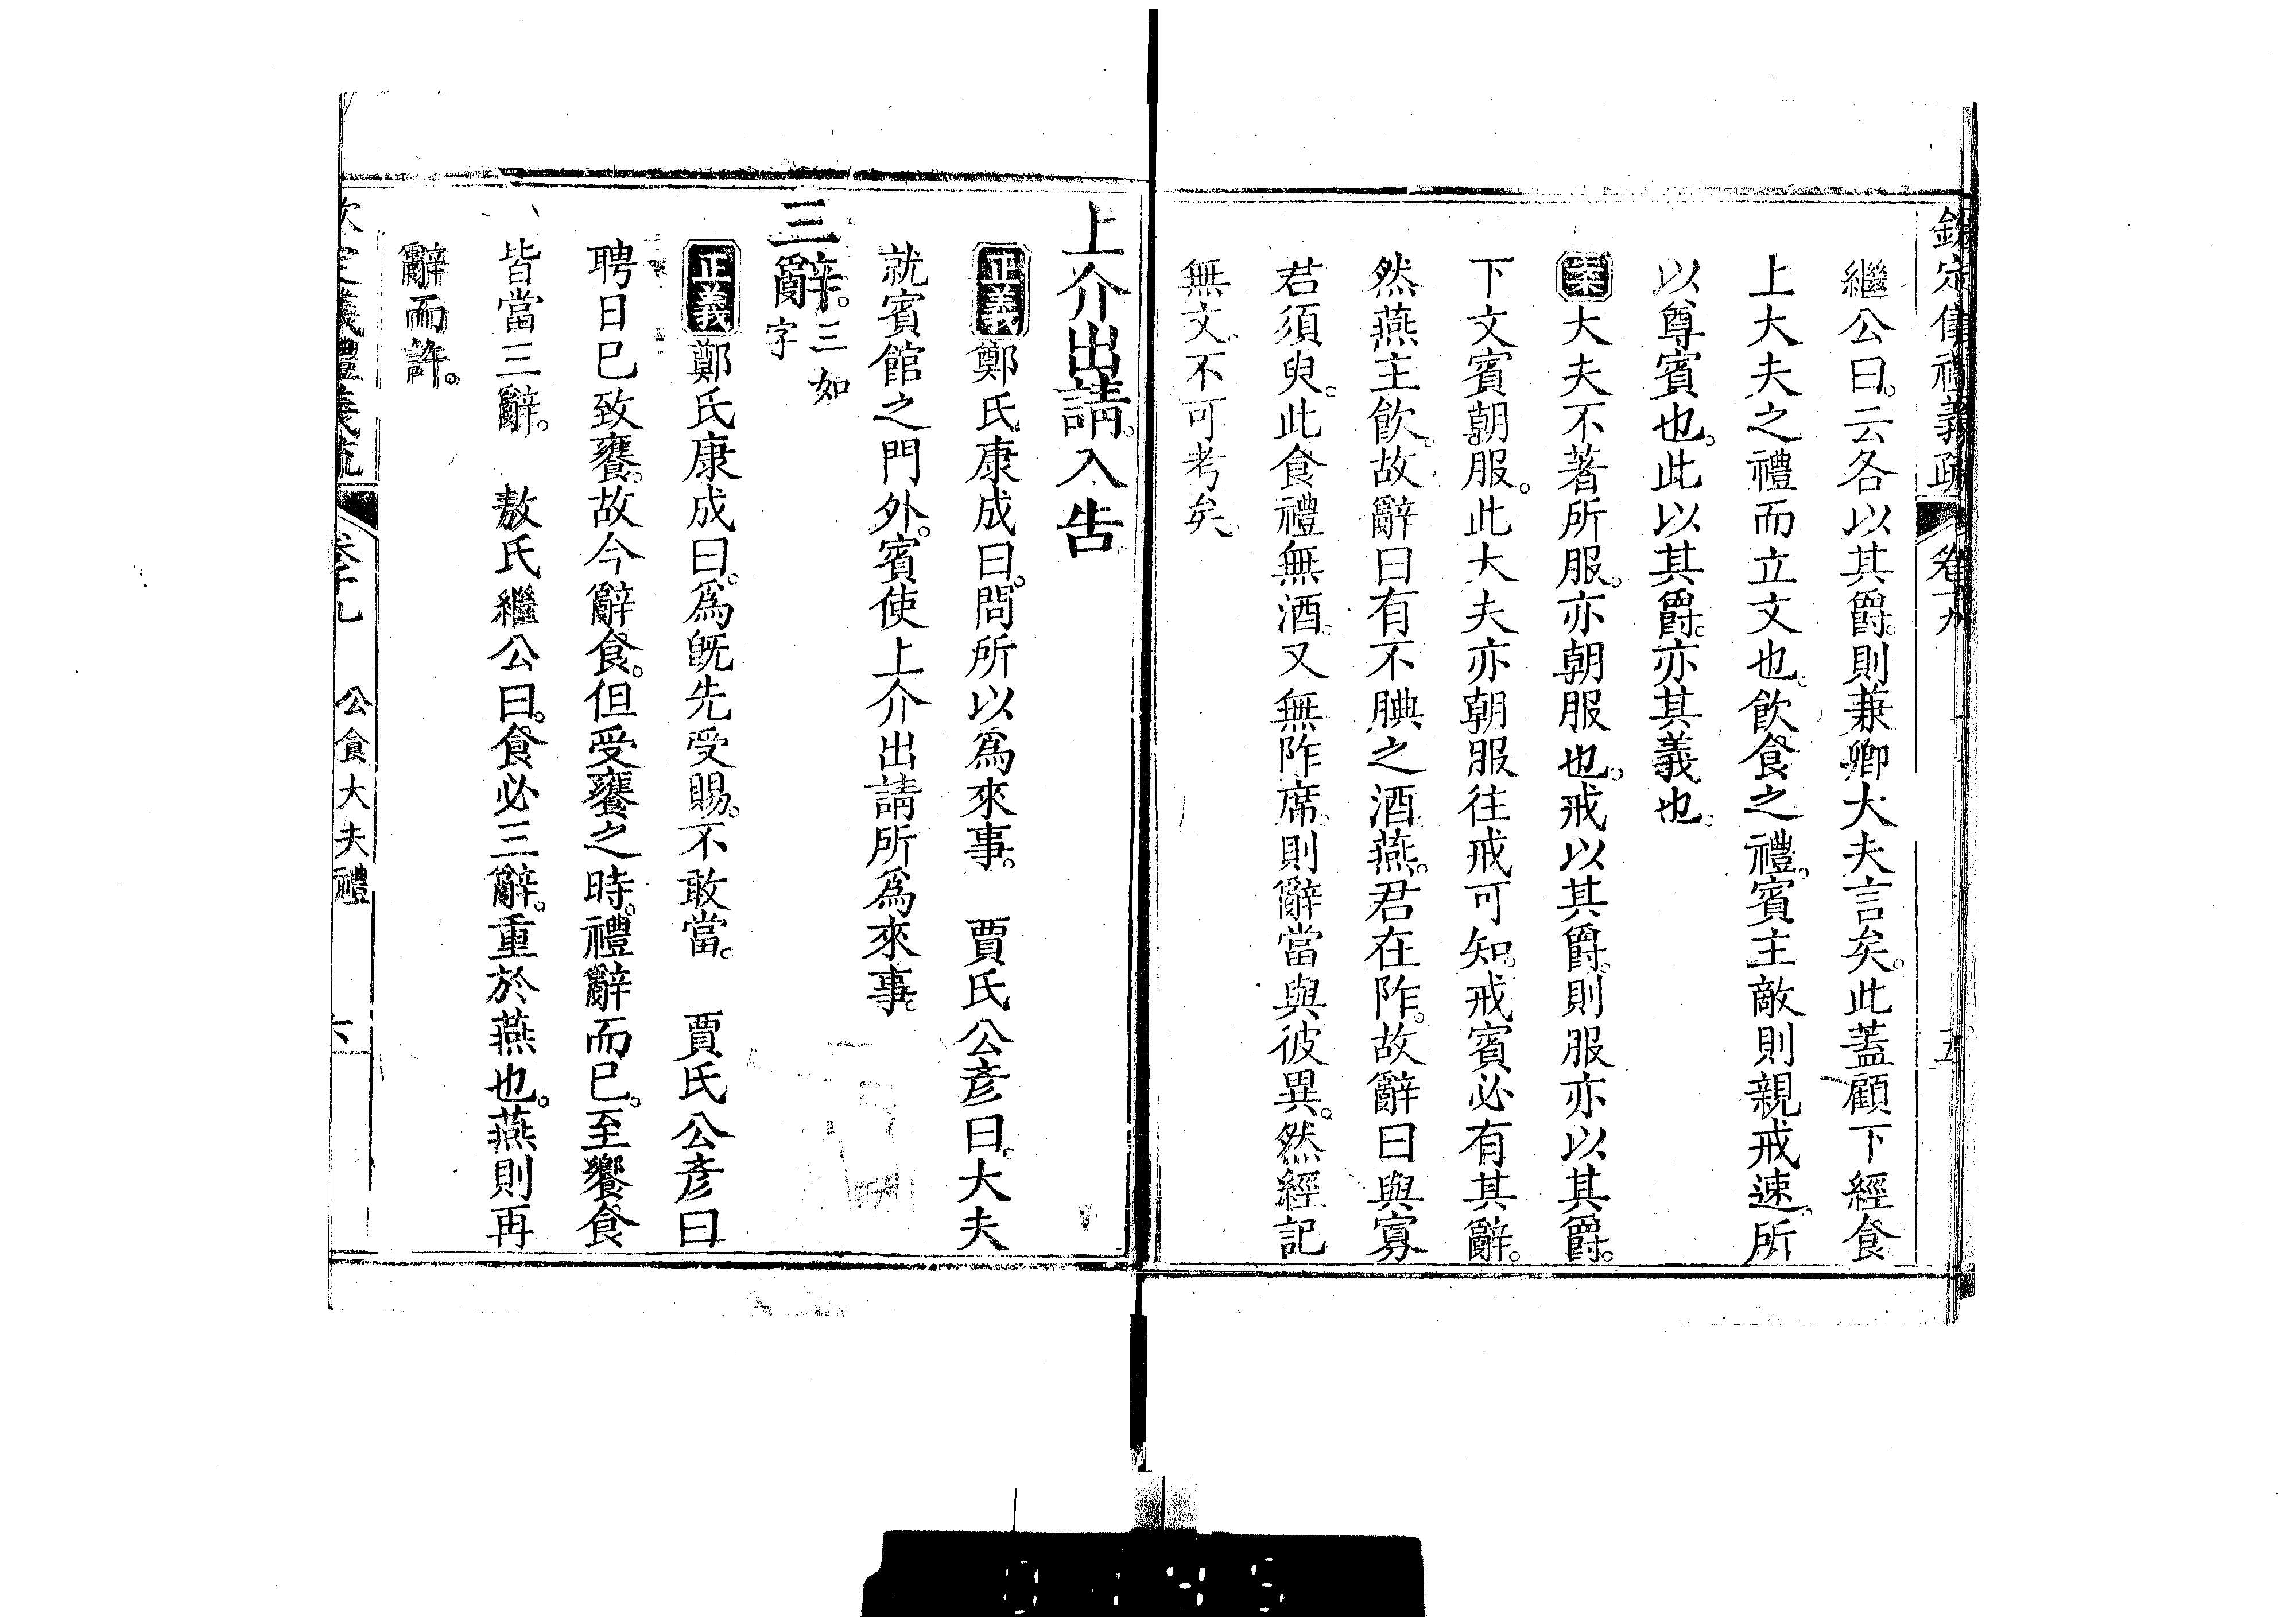 欽定儀禮義疏 卷十九 五
繼公曰。云各以其爵。則兼卿大夫言矣。此蓋顧下經食
上大夫之禮而立文也。飲食之禮。賓主敵則親戒速。所
以尊賓也。此以其爵。亦其義也。
案大夫不著所服。亦朝服也。戒以其爵。則服亦以其爵。
下文賓朝服。此大夫亦朝服往戒可知。戒賓必有其辭。
然燕主飲。故辭曰有不腆之酒。燕。君在阼。故辭曰與寡
君須臾。此食禮無酒。又無阼席。則辭當與彼異。然經記
無文。不可考矣。
上介出請。入告。
正義鄭氏康成曰。問所以為來事。 賈氏公彥曰。大夫
就賓館之門外。賓使上介出請所為來事。
三辭。三如字
正義鄭氏康成曰。為既先受賜。不敢當。 賈氏公彥曰
聘日已致饔。故今辭食。但受饔之時。禮辭而已。至饗食
皆當三辭。 敖氏繼公曰。食必三辭。重於燕也。燕則再
辭而許。
欽定儀禮義疏 卷十九 公食大夫禮 六